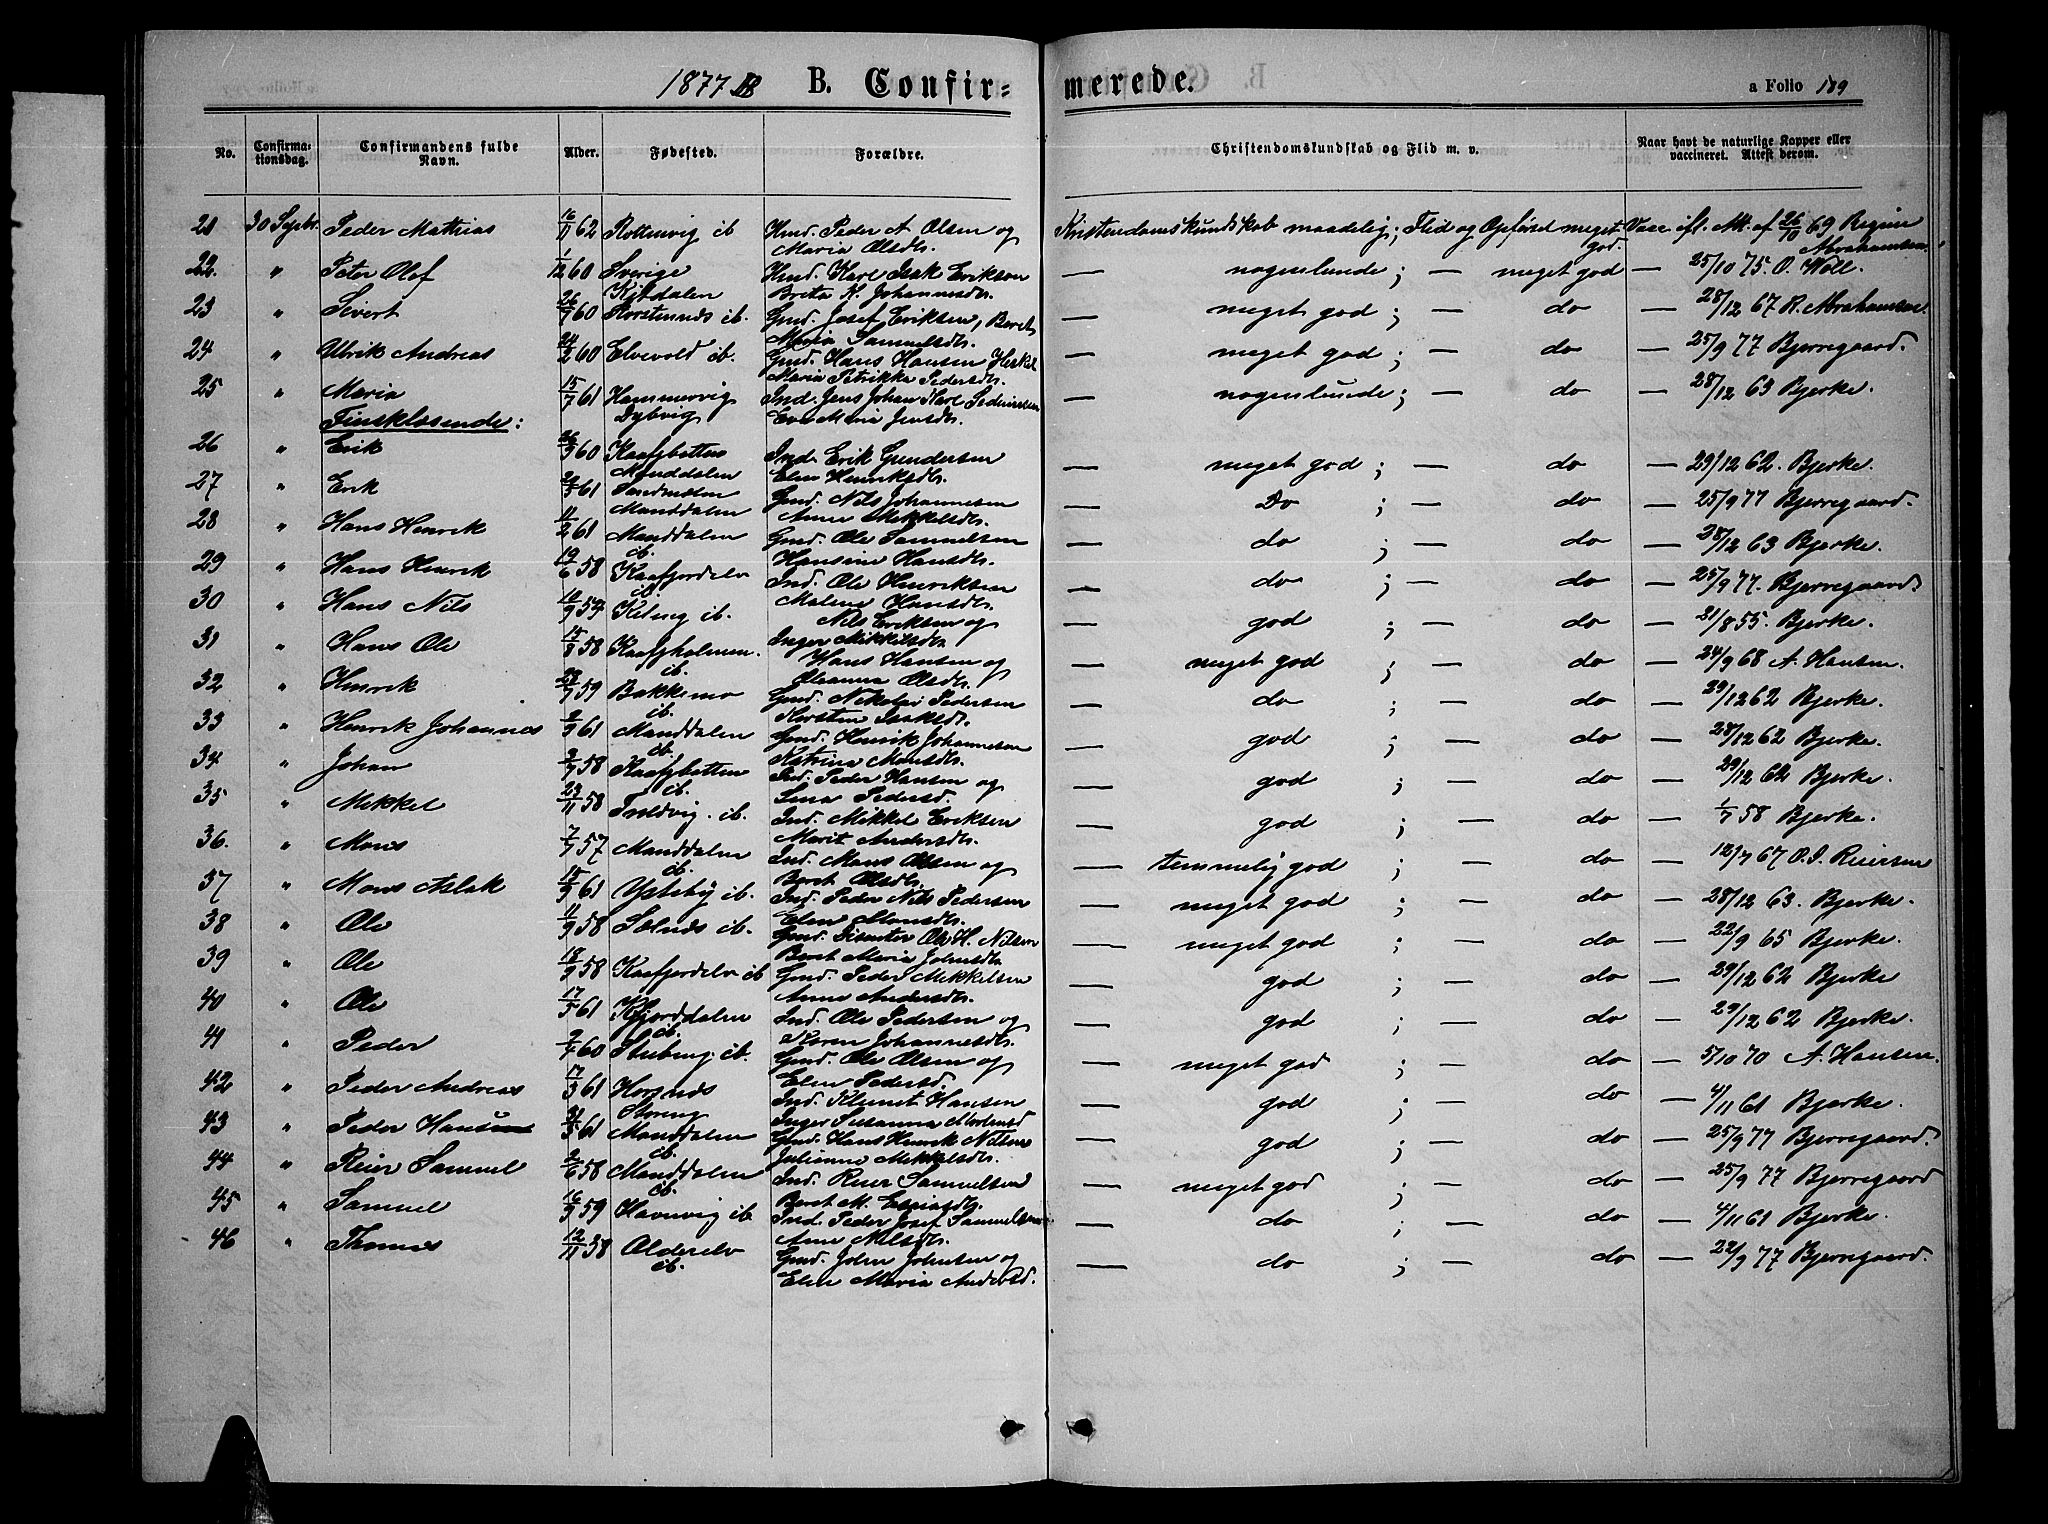 1877 B. Confirmerede. a Folio 189
No. Confirmationsdag. Confirmandens fulde Navn. Alder. Fødested. Forældre. Christendomskundskab og Flid m. v. Naar havt de naturlige Kopper eller vaccineret. Attest derom.
21 30 Septbr. Peder Mathias 16/11 62 Rottenvig ib Gmd. Peder A. Olsen og Maria Olsdtr. Kristendomskundskab maadelig; Flid og Opførsel meget god. Vacc. ifl. Att. af 26/10 69 Regine Abrahamsen
22 " Peter Olof 1/12 60 Sverige Gmd. Karl Isak Erikson Brita K. Johannesdtr. — nogenlunde; — meget god — 25/10 75. O. Woll.
23 " Sivert 26/7 60 Kitdalen Horsnes ib. Gmd. Josef Eriksen, Beret Maria Samuelsdtr. — meget god; — do — 28/12 67 R. Abrahamsen.
24 " Ulrik Andreas 24/2 60 Elvevold ib. Gmd. Hans Hansen Heskel Maria Petrikke Pedersdtr. — meget god; — do — 25/9 77 Bjerregaard.
25 " Maria 15/7 61 Hammervig Dybvig Ind. Jens Johan Karl Pedersen Eva Maria Jensdtr. — nogenlunde; — do — 28/12 63 Bjerke.
Finsklæsende:
26 " Erik 26/3 60 Kaafjbotten Ind. Erik Gundersen Elen Henriksdtr. — meget god; — do — 29/12 62. Bjerke.
27 " Erik 61 Manddalen Gmd. Nils Johannesen Anne Mikkelsdtr. — Do; — do — 25/9 77 Bjerregaard.
28 " Hans Henrik 11/2 61 Manddalen Manddalen ib. Gmd. Ole Samuelsen Hansine Hansdtr. — do; — do — 28/12 63 Bjerke.
29 " Hans Henrik 19/6 58 Kaafjordelv ib. Ind. Ole Henriksen Malene Hansdtr. — do; — do — 25/9 77. Bjerregaard
30 " Hans Nils 10/9 54 ib. Nils Eriksen og Inger Mikkelsdtr — god; — do — 21/8 55. Bjerke.
31 " Hans Ole 15/8 58 Kaafjholmen. ib. Hans Hansen og Oleanna Olsdtr. — meget god; — do — 24/9 68 A. Hansen.
32 " Henrik 59 Bakkemo ib. Gmd. Nikolai Pedersen Kirsten Isaksdtr. — do; — do — 29/12 62 Bjerke.
33 " Henrik Johannes 61 Manddalen ib. Gmd. Henrik Johannesen Katrina Monsdtr. — god; — do — 28/12 62 Bjerke.
34 " Johan 2/7 58 Kaafjbotten ib. Ind. Peder Hansen og Lena Pedersd. — god; — do — 29/12 62 Bjerke.
35 " Mikkel 23/11 58 ib. Ind. Mikkel Eriksen Marit Andersdtr. — god; — do — 1/7 58 Bjerke.
36. " Mons 7/7 57 Manddalen ib. Ind. Mons Olsen og Beret Olsdtr. — temmelig god; — do — 12/7 67 O. J. Reiersen
37 " Mons Aslak 15/9 61 Ysteby ib. Ind. Peder Nils Pedersen Elen Monsdtr. — meget god; — do — 28/12 63. Bjerke.
38 " Ole 11/9 58 Solnes ib. Gmd. Disenter Ole H. Nilsen Beret Maria Johnsdtr — meget god; — do — 22/9 65 Bjerke.
39 " Ole 18/9 58 Kaafjordelv ib Gmd. Peder Mikkelsen Anne Andersdtr. — god; — do — 29/12 62 Bjerke
40 " Ole 17/5 61 ib. Ind. Ole Pedersen og Karen Johannesdtr. — god; — do — 29/12 62 Bjerke.
41 " Peder 60 ib. Gmd. Ole Olsen og Elen Pedersd. — meget god; — do — 5/10 70 A. Hansen.
42 " Peder Andreas 17/3 61 Horsnes Ind. Klemet Hansen Inger Susanna Mortensd — god; — do — 4/11 61 Bjerke.
43 " Peder Hans 61 Storeng Manddalen ib. Gmd. Hans Henrik Nilsen Julianne Mikkelsdtr. — god; — do — 25/9 77 Bjerregaard.
44 " Reier Samuel 2/6 58 Manddalen ib. Ind. Reier Samuelsen Beret M. Esaiasdtr. — meget god; — do — 25/9 77 Bjerregaard
45 " Samuel 16/9 59 Havnvig ib Ind. Peder Josef Samuelsen Ane Nilsdtr. — do; — do — 4/11 61 Bjerke.
46 " Thomas 12/11 58 Olderelv ib. Gmd. John Johnsen og Elen Maria Andersd. — do; — do — 22/9 77 Bjerregaard.